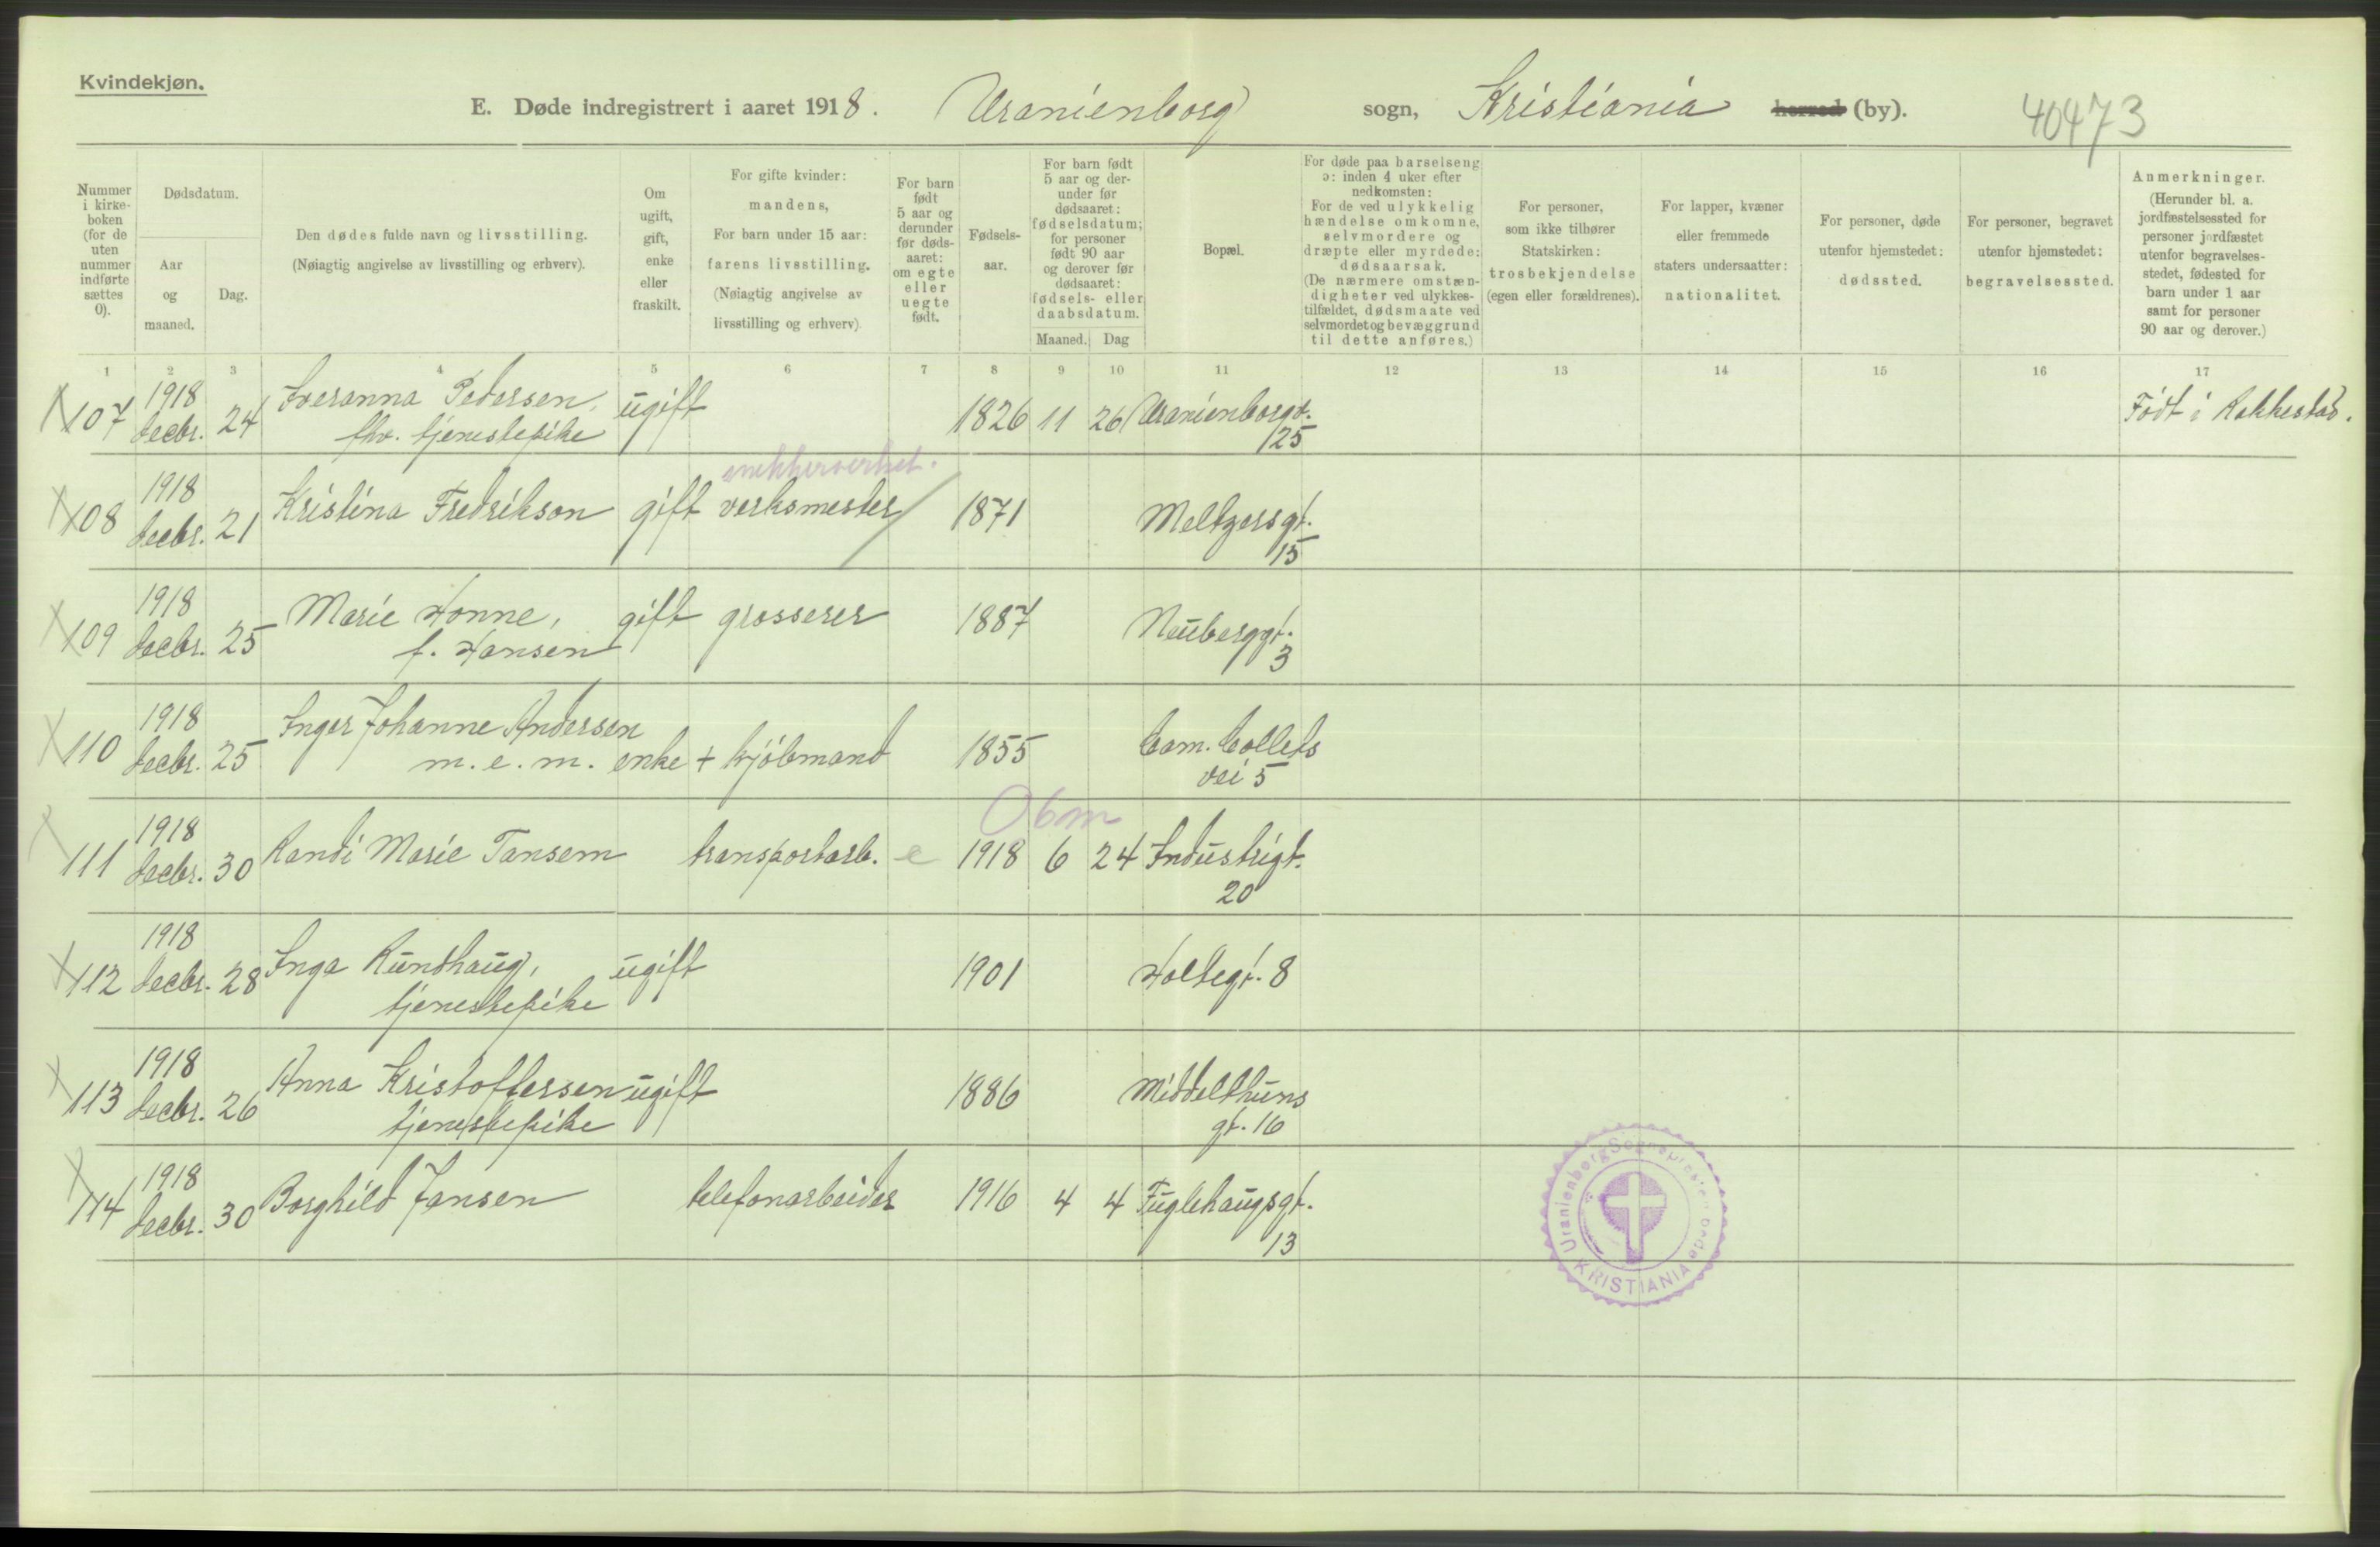 Kvindekjøn.
E. Døde indregistrert i aaret 1918. Uranienborg sogn, Kristiania herred (by). 40473
Nummer i kirke-boken (for de uten nummer indførte sættes 0).
Dødsdatum.
Aar og maaned.
Dag.
Den dødes fulde navn og livsstilling.
(Nøiagtig angivelse av livsstilling og erhverv).
Om ugift, gift, enke eller fraskilt.
For gifte kvinder: mandens,
For barn under 15 aar: farens livsstilling.
(Nøiagtig angivelse av livsstilling og erhverv)
For barn født 5 aar og derunder før døds-aaret: om egte eller uegte født.
Fødsels-aar.
For barn født 5 aar og der-under før dødsaaret: fødselsdatum; for personer født 90 aar og derover før dødsaaret: fødsels- eller daabsdatum.
Maaned. Dag
Bopæl.
For døde paa barselseng ɔ: inden 4 uker efter nedkomsten:
For de ved ulykkelig hændelse omkomne, selvmordere og dræpte eller myrdede: dødsaarsak.
(De nærmere omstæn-digheter ved ulykkes-tilfældet, dødsmaate ved selvmordet og bevæggrund til dette anføres.)
For personer, som ikke tilhører Statskirken: trosbekjendelse (egen eller forældrenes).
For lapper, kvæner eller fremmede staters undersaatter: nationalitet.
For personer, døde utenfor hjemstedet: dødssted.
For personer, begravet utenfor hjemstedet: begravelsessted.
Anmerkninger.
(Herunder bl. a. jordfæstelsessted for personer jordfæstet utenfor begravelses-stedet, fødested for barn under 1 aar samt for personer 90 aar og derover.)
1 2 3 4 5 6 7 8 9 10 11 12 13 14 15 16 17
107 1918 decbr. 24 Iveranna Pedersen, ugift 1826 11 26 Uranienborgv. 125 Født i Rakkestad.
fhv. tjenestepike
108 1918 decbr. 21 Kristina Fredrikson gift verksmester 1871 Meltzersgt. 15
109 1918 decbr. 25 Marie Honne, gift grosserer 1887 Neuberggt. 3
f. Hansen
110 1918 decbr. 25 Inger Johanne Andersen
m. e. m. enke + kjøbmand 1855 Cam. Collets vei 5
Obm
111 1918 decbr. 30 Randi Marie Tansem transportarb. e 1918 6 24 Industrigt. 20
112 1918 decbr. 28 Inga Rundhaug, ugift 1901 Holtegt. 8
tjenestepike
113 1918 decbr. 26 Anna Kristoffersen ugift 1886 Middelthuns gt. 16
tjenestepike
114 1918 decbr. 30 Borghild Jansen telefonarbeider 1916 4 4 Fuglehaugsgt. 13
Uranienborg Sogneprestembede
KRISTIANIA